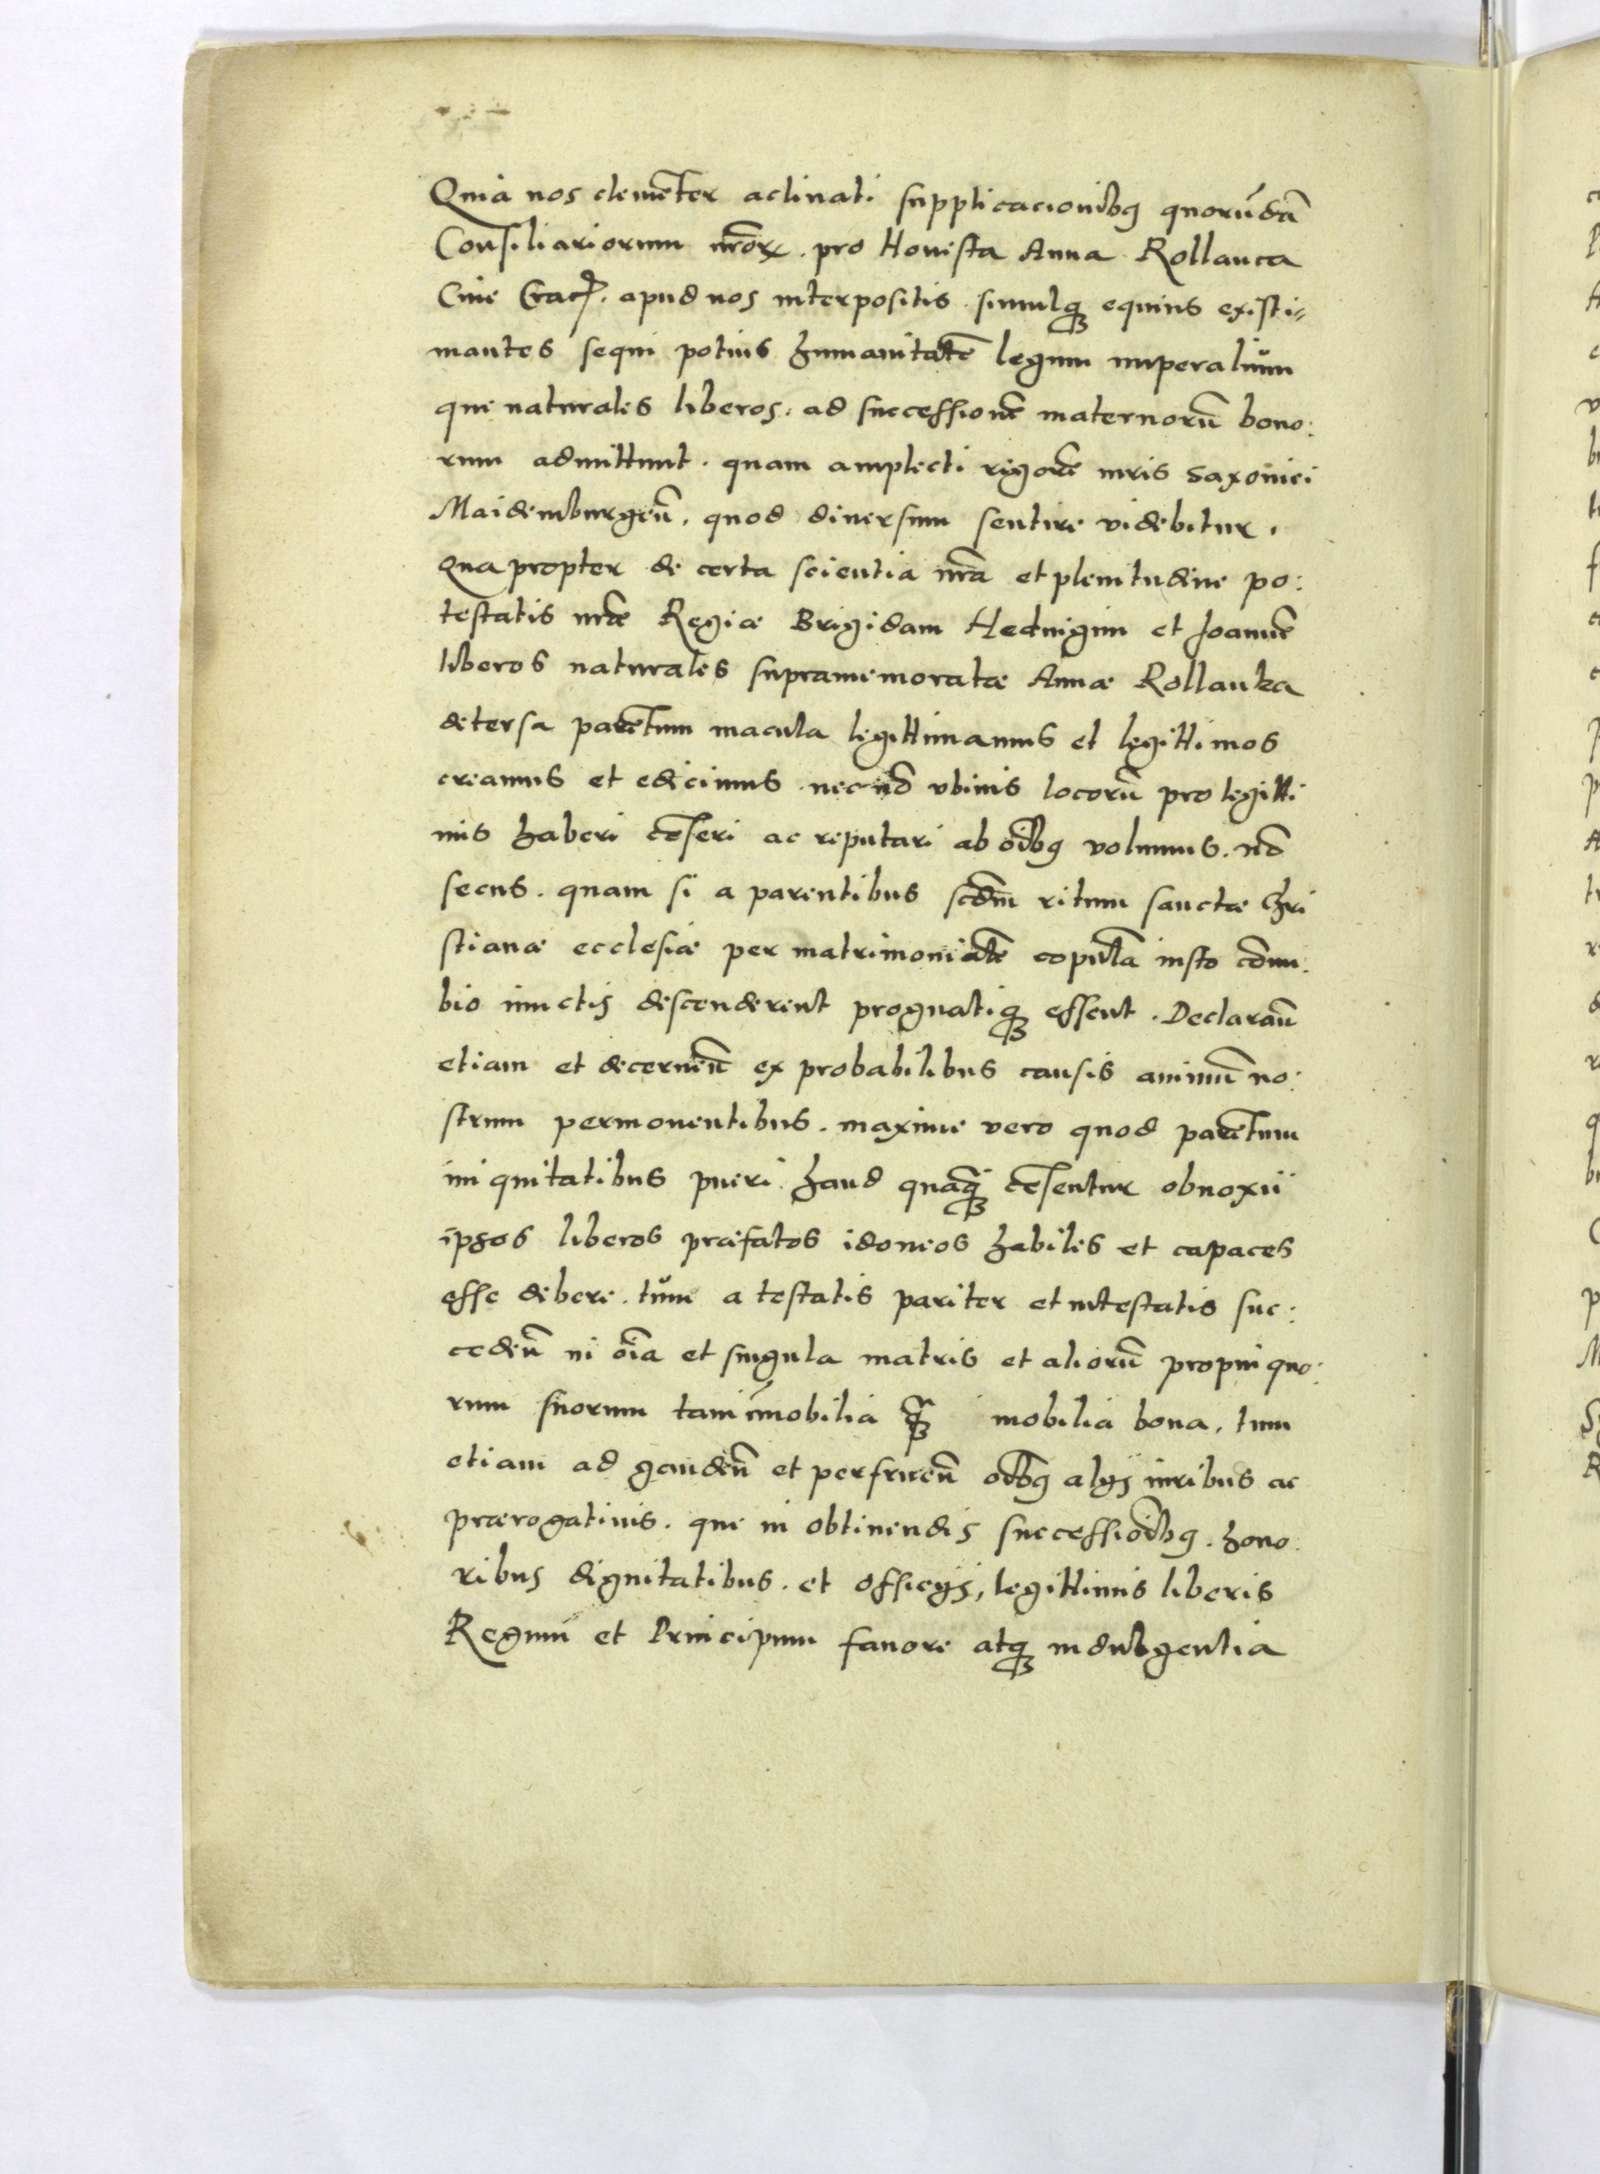 Quia nos clemẽter aclinati supplicacionibꝫ quorũdã
Consiliariorum nr̃oꝝ . pro Honesta Anna Rollanca
Ciue Crac̃ . apud nos interpositis . simulqꝫ equius existi=
mantes sequi potius humanitatẽ legum imperalium
que naturales liberos . ad successionẽ maternorũ bono:
rum admittunt . quam amplecti rigorẽ iuris Saxonici
Maidemburgeñ . quod diuersum sentire videbitur .
Qua propter de certa scientia nr̃a et plenitudine po:
testatis nr̃æ Regiæ Brigidam Heduigim et Joannẽ
liberos naturales supramemoratæ Annæ Rollanka
detersa parẽtum macula legittimamus et legittimos
creamus et edicimus necnõ vbiuis locorũ pro legitti
mis haberi cẽseri ac reputari ab oĩbꝫ volumus . nõ
secus . quam si a parentibus scd̃m ritum sanctæ Chri
stianæ ecclesiæ per matrimonialẽ copulã iusto cõnu:
bio iunctis descenderent prognatiqꝫ essent . Declarañ
etiam et decerneñ ex probabilibus causis animũ no:
strum permouentibus . maxime vero quod parẽtum
iniquitatibus pueri haud quãqꝫ cẽsentur obnoxii
ipsos liberos præfatos idoneos habiles et capaces
esse debere . tum a testatis pariter et intestatis suc:
cedeñ in oĩa et singula matris et aliorũ propinquo:
rum suorum tam immobilia qꝫ̃ mobilia bona . tum
etiam ad gaudeñ et perfrueñ oĩbꝫ alijs iuribus ac
prærogatiuis . que in obtinendis successiõibꝫ . hono:
ribus dignitatibus . et officijs, legittimis liberis
Regum et Principum fauore atqꝫ indulgentia